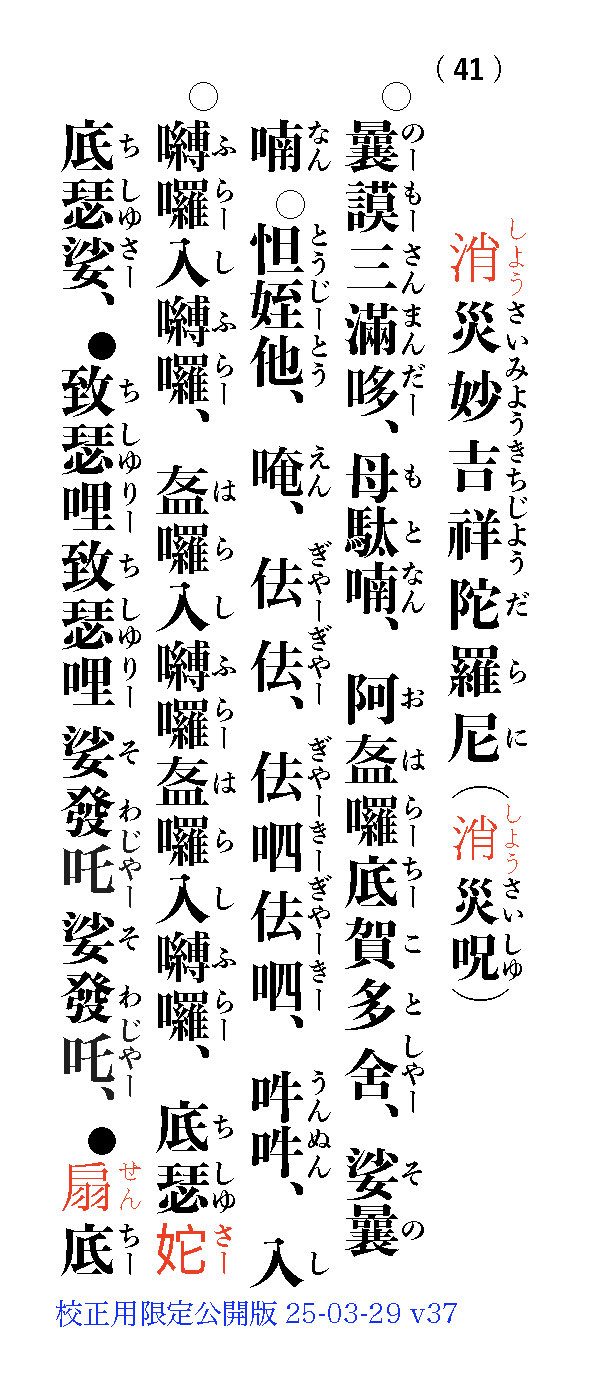 （41）
しようさいみようきちじようだらに しようさいしゆ
消災妙吉祥陀羅尼（消災呪）
のーもーさんまんだー もとなん おはらーちーことしやー その
○曩謨三滿哆、母駄喃、 阿盋囉底賀多舍、 娑曩
なん とうじーとう えん ぎやーぎやー ぎやーきーぎやーきー うんぬん し
喃○怛姪他、 唵、 佉佉、 佉呬佉呬、 吽吽、 入
ふらーしふらー はらしふらーはらしふらー ちしゆさー
○嚩囉入嚩囉、 盋囉入嚩囉盋囉入嚩囉、 底瑟
ちしゆさー ちしゆりーちしゆりー そわじやーそわじやー せんちー
底瑟娑、●致瑟哩致瑟哩娑發吒娑發吒、●扇底
校正用限定公開版 25-03-29 v37